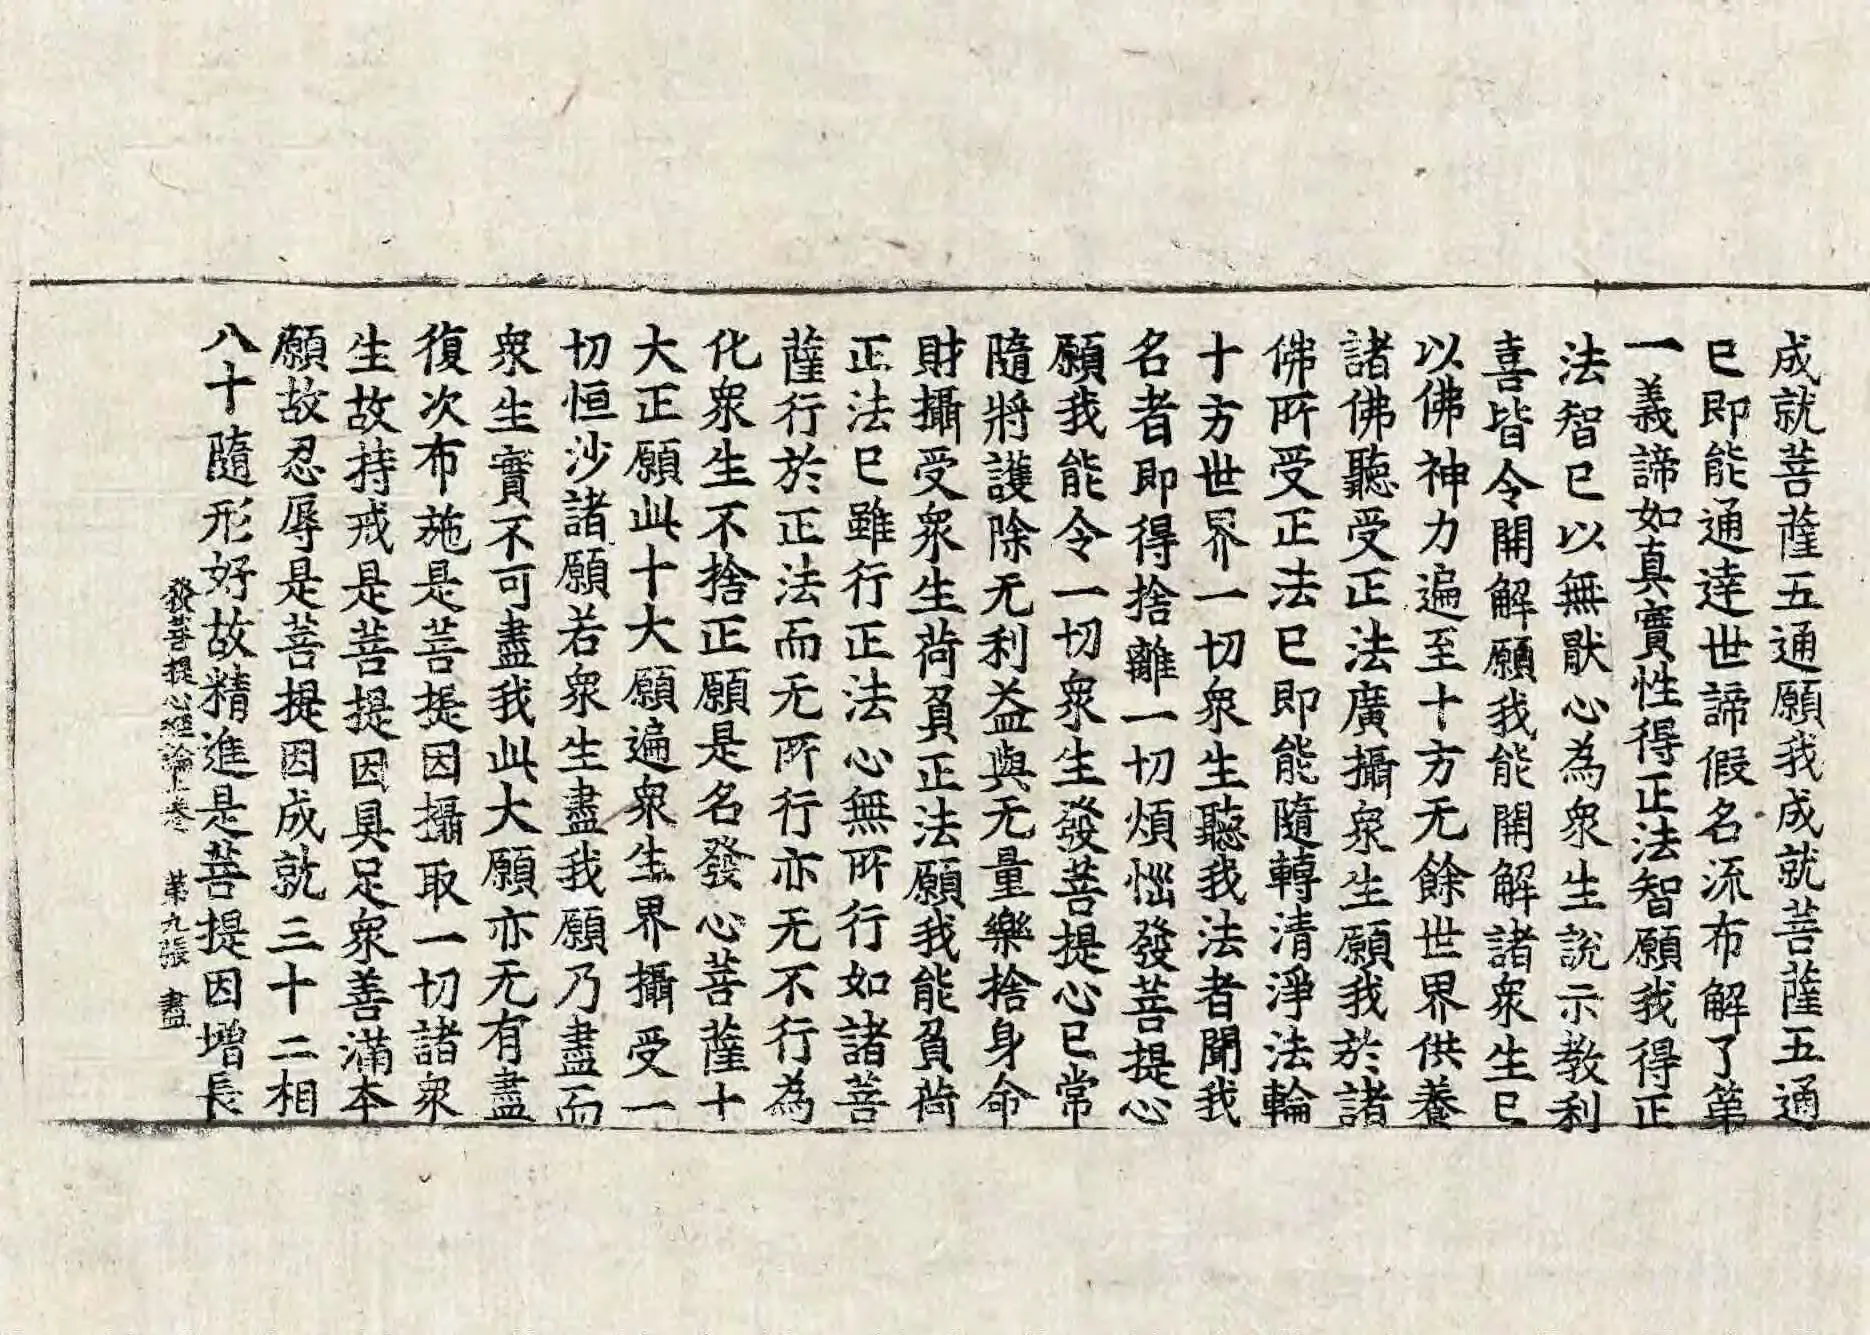 成就菩薩五通願我成就菩薩五通
已即能通達世諦假名流布解了第
一義諦如真實性得正法智願我得正
法智已以無猒心為衆生說示教利
喜皆令開解願我能開解諸衆生已
以佛神力遍至十方无餘世界供養
諸佛聽受正法廣攝衆生願我於諸
佛所受正法已即能隨轉清淨法輪
十方世界一切衆生聽我法者聞我
名者即得捨離一切煩惱發菩提心
願我能令一切衆生發菩提心已常
隨將護除无利益與无量樂捨身命
財攝受衆生荷負正法願我能負荷
正法已雖行正法心無所行如諸菩
薩行於正法而无所行亦无不行為
化衆生不捨正願是名發心菩薩十
大正願此十大願遍衆生界攝受一
切恒沙諸願若衆生盡我願乃盡而
衆生實不可盡我此大願亦无有盡
復次布施是菩提因攝取一切諸衆
生故持戒是菩提因具足衆善滿本
願故忍辱是菩提因成就三十二相
八十隨形好故精進是菩提因增長
發菩提心經論上卷 第九張 盡